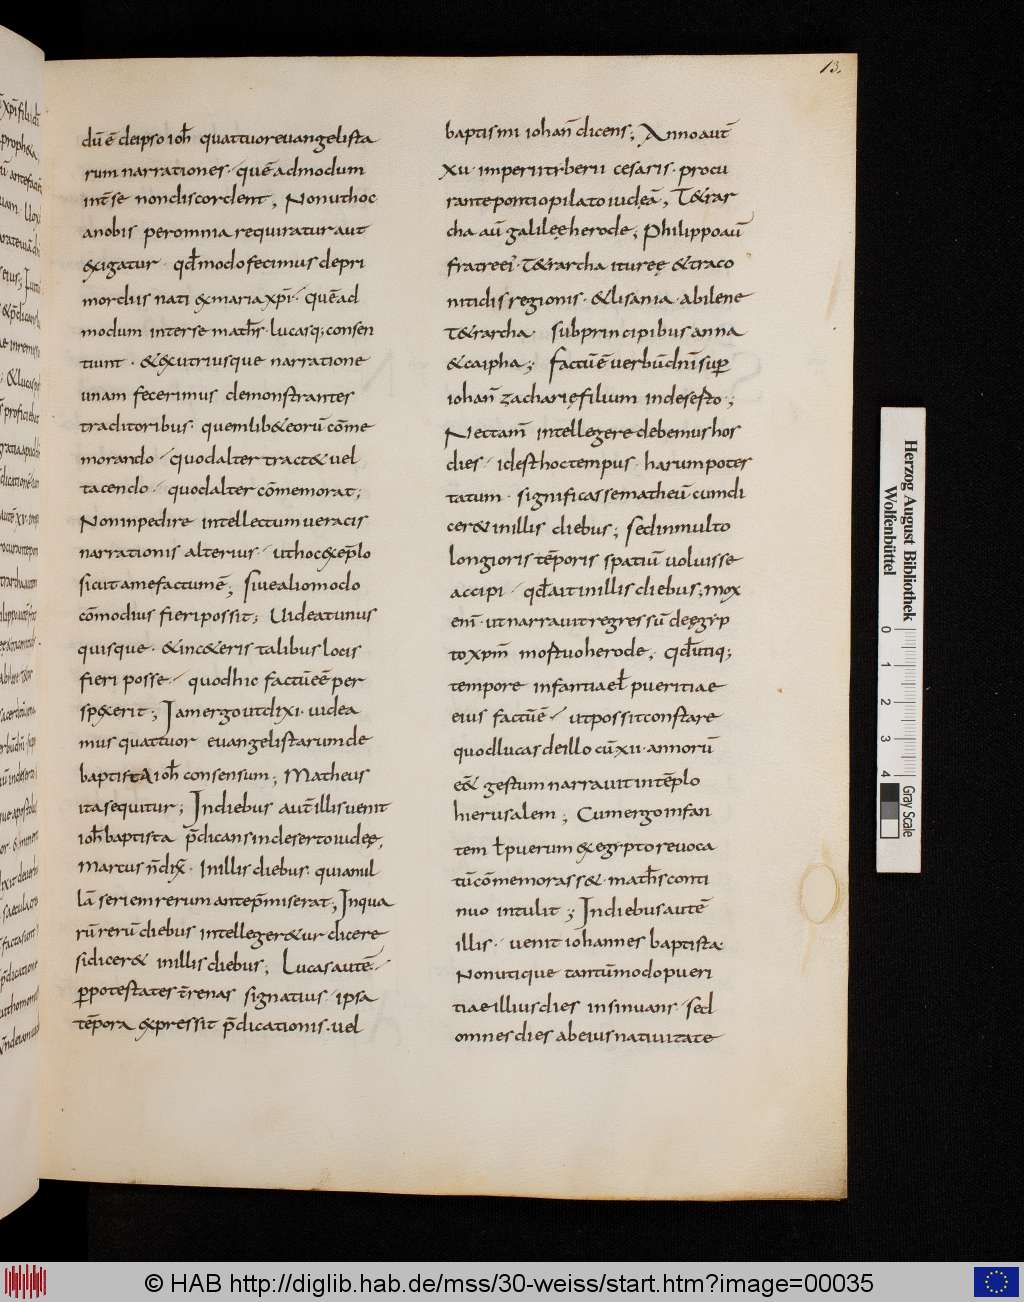 13.
dū ē deipso ioħ quattuor euangelista
rum narrationes · quē admodum
int̄ se non discordent; Non ut hoc
a nobis per omnia requiratur aut
exigatur · qđ modo fecimus de pri
mordiis nati ex maria xp̄i · quēad
modum inter se math̄s · lucasq; consen
tiunt · & ex utriusque narratione
unam fecerimus demonstrantes
traditoribus · quemlib& eorū cōme
morando · quod alter tract& uel
tacendo · quod alter cōmemorat;
Non inpedire intellectum ueracis
narrationis alterius · ut hoc exēplo
sicut a me factum ē; siue alio modo
cōmodius fieri possit; Uideat unus
quisque · & in c&eris talibus locis
fieri posse · quod hic factū eē per
spexerit; Iam ergo ut dixi · uidea
mus quattuor euangelistarum de
baptista ioħ consensum; Matheus
ita sequitur; In diebus aut̄ illis uenit
ioħ baptista p̄dicans in deserto iudęę;
Marcus n̄ dix̄ · In illis diebus · quia nul
lā seriem rerum ante p̄miserat; In qua
rū rerū diebus intelleger&ur dicere
si dicer& in illis diebus; Lucas autē ·
ꝑ potestates t̄renas signatius · ipsa
tēpora expressit p̄dicationis · uel
baptismi iohan̄ dicens; Anno aut̄
xv · imperii tyberii cesaris · procu
rante pontio pilato iudęā; T&rar
cha aū galilęę herode; Philippo aū
fratre ei' · T&rarcha ituręę & traco
nitidis regionis · & lisania · abilene
T&rarcha · sub principibus anna
& caipha; factū ē uerbū dn̄i suꝑ
iohan̄ zacharię filium in deserto;
Nec tam̄ intellegere debemus hos
dies · id est hoc tempus · harum potes
tatum · significasse matheū cum di
cer& in illis diebus; sed in multo
longioris tēporis spatiū uoluisse
accipi · qđ ait in illis diebus; mox
eni̅ · ut narrauit regressū de ęgyp
to xpm̄ mortuo herode; qđ utiq;
tempore infantiae ł pueritiae
eius factū ē · ut possit constare
quod lucas de illo cū xii · annorū
eē& gestum narrauit in tēplo
hierusalem; Cum ergo infan
tem ł puerum ex egypto reuoca
tū cōmemorass& · math̄s conti
nuo intulit; In diebus autē
illis · uenit iohannes baptista
Non utique tantūmodo pueri
tiae illius dies insinuans · sed
omnes dies ab eius natiuitate
Herzog August Bibliothek
Wolfenbüttel
0 1 2 3 4
Gray Scale
© HAB http://diglib.hab.de/mss/30-weiss/start.htm?image=00035